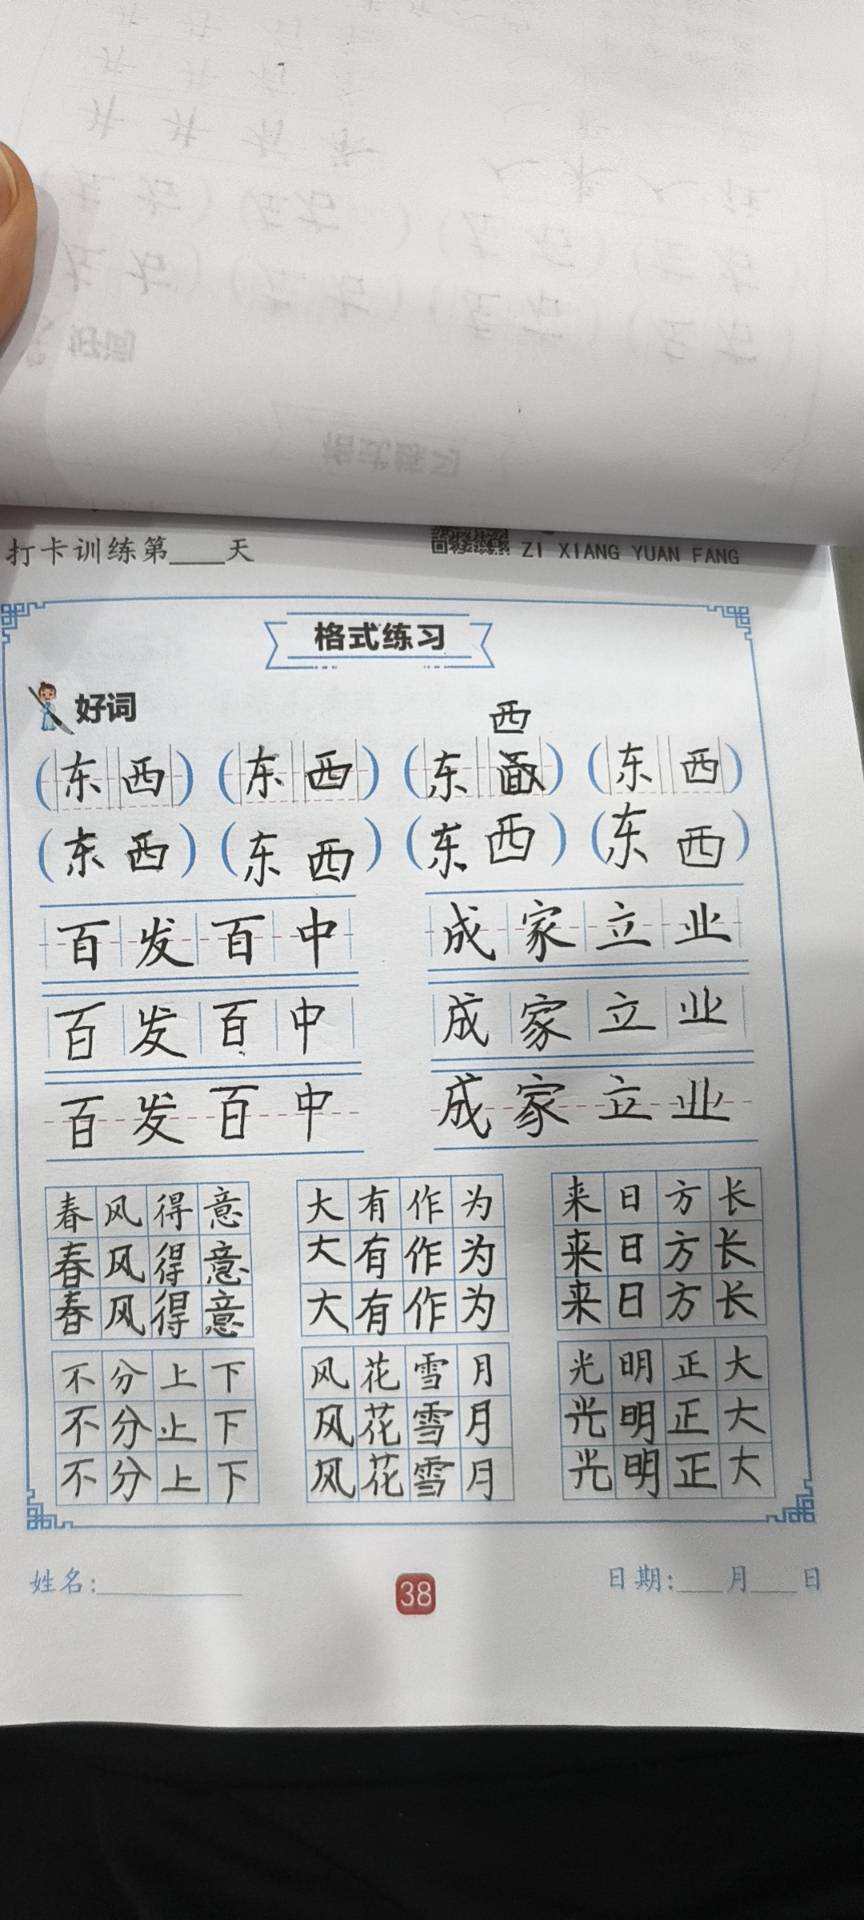 打卡训练第____天
ZI XIANG YUAN FANG
格式练习
好词
西
(东西) (东西) (东) (东西)
(东西) (东西) (东西) (东西)
百发百中 成家立业
百发百中 成家立业
百发百中 成家立业
春风得意 大有作为 来日方长
春风得意 大有作为 来日方长
春风得意 大有作为 来日方长
不分上下 风花雪月 光明正大
不分止下 风花雪月 光明正大
不分上下 风花雪月 光明正大
姓名:____ 38 日期:____月____日